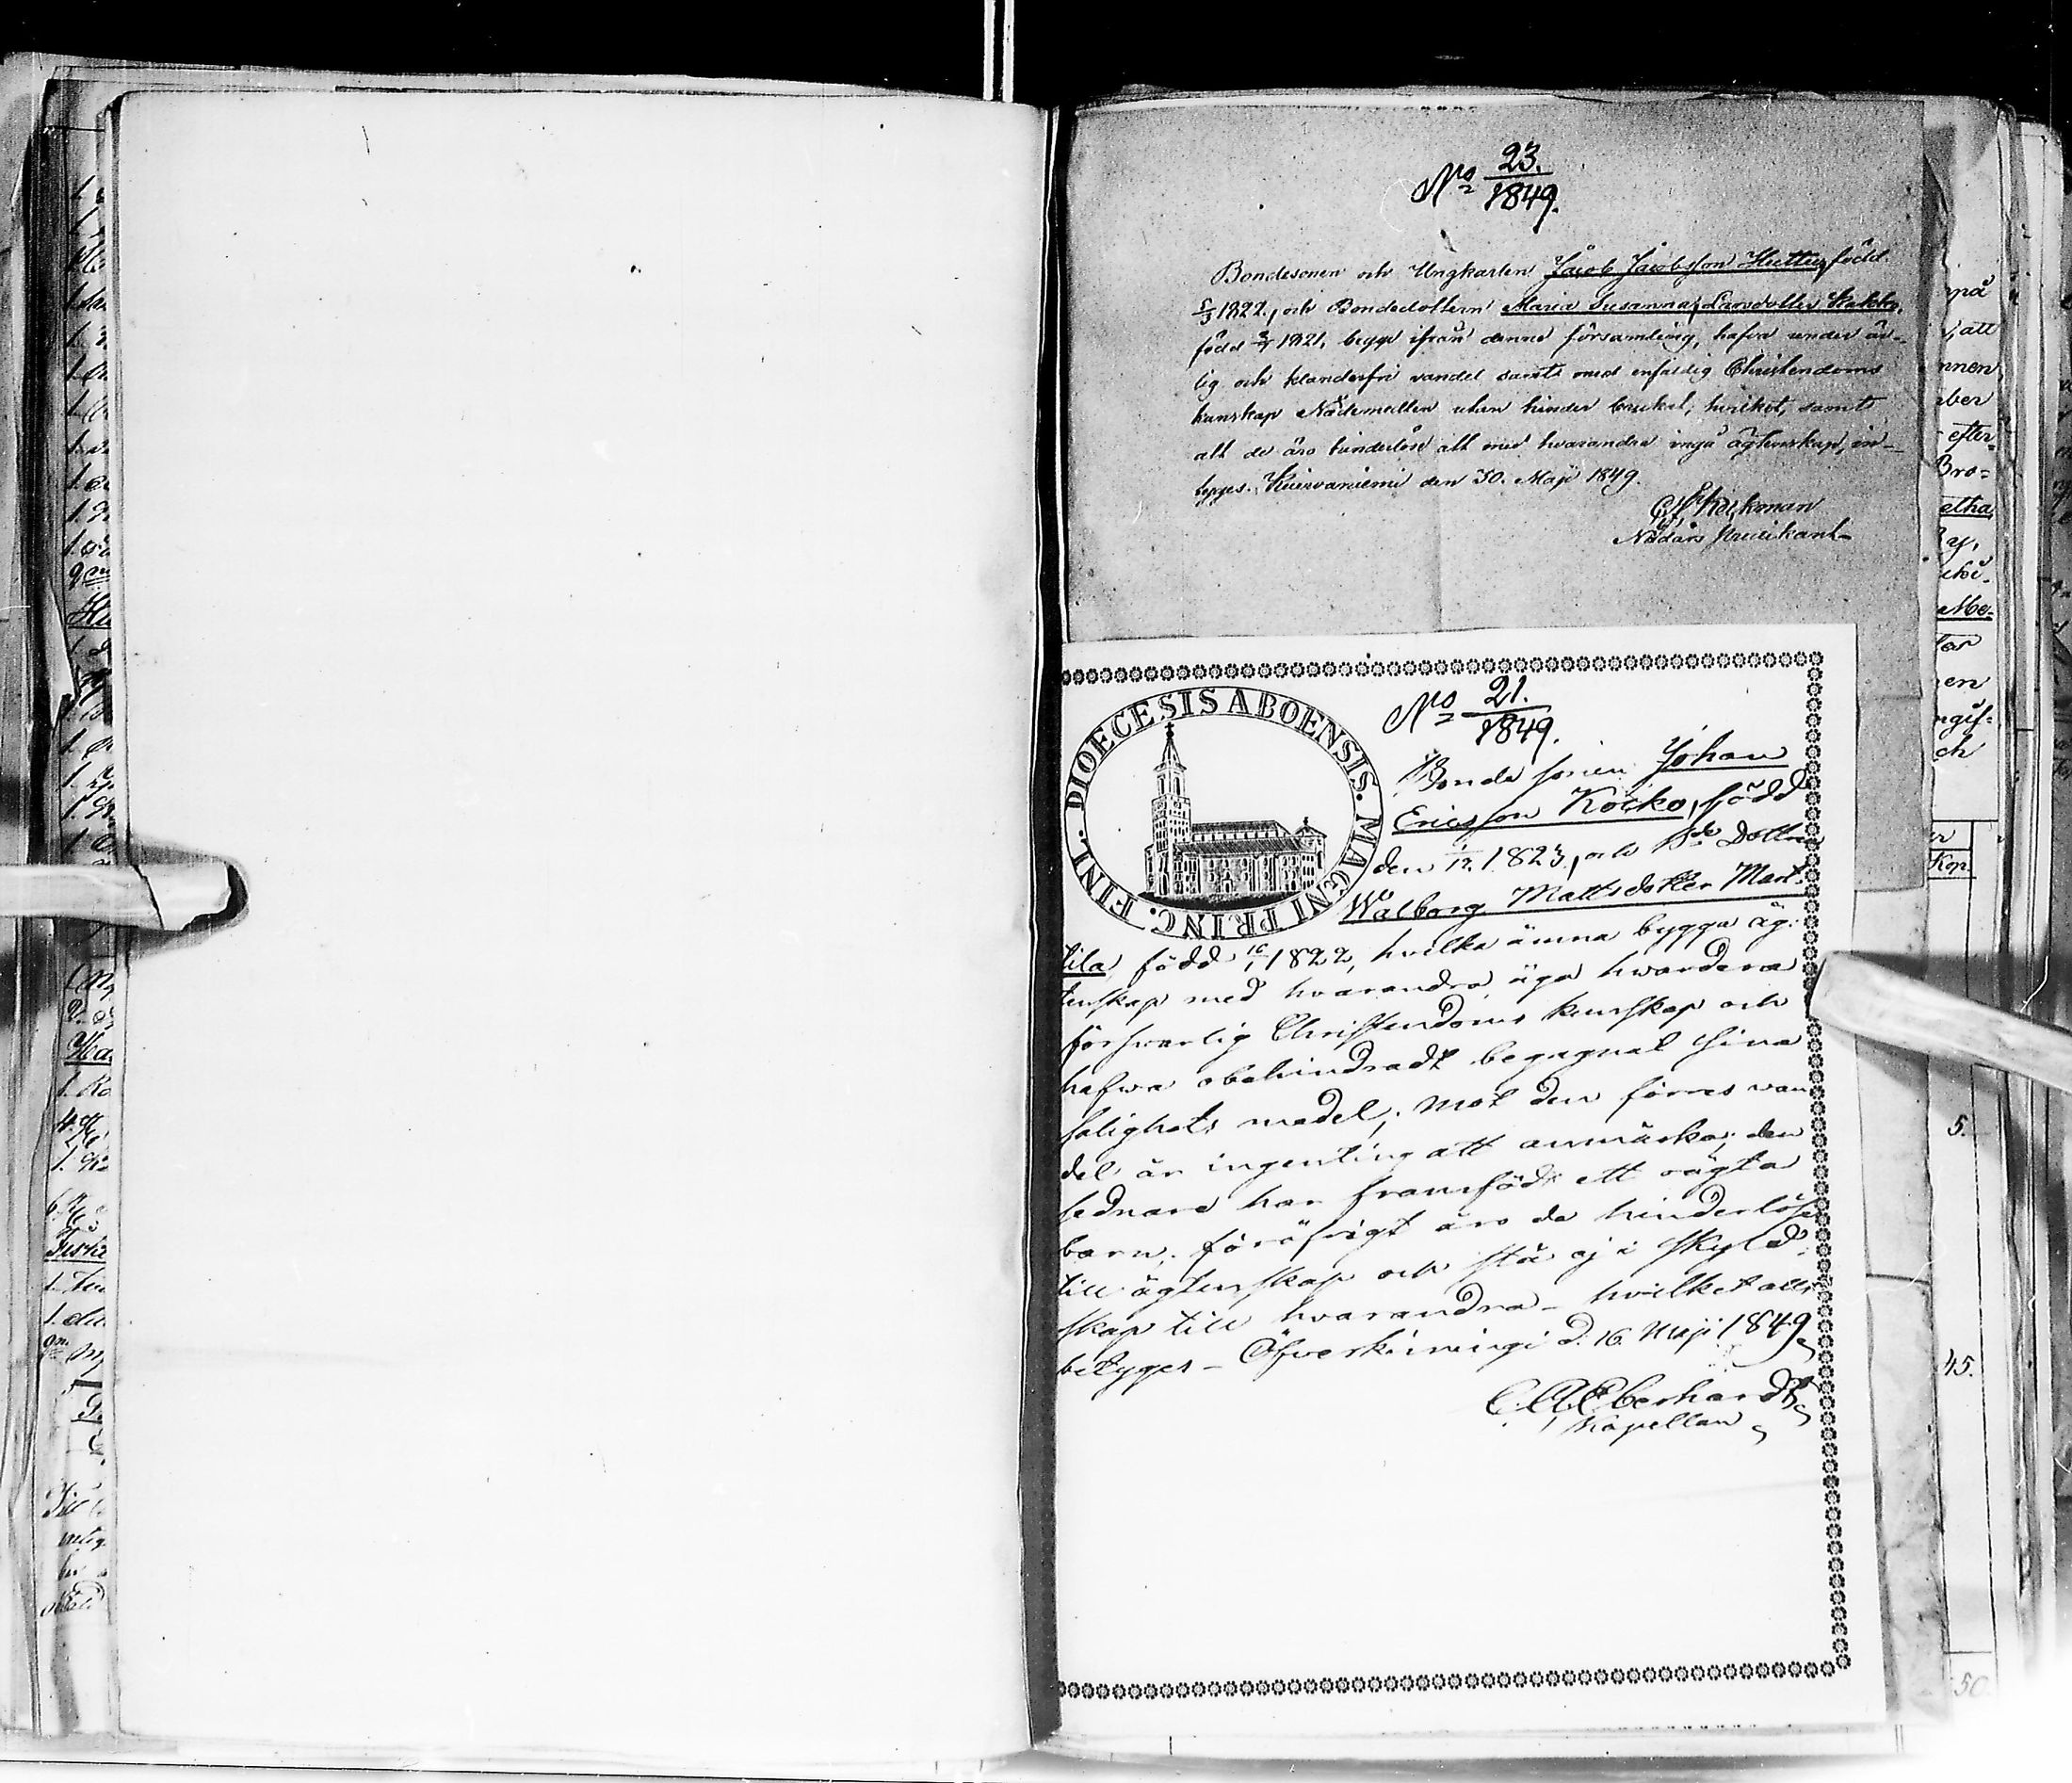 No 23.
1849.
Bondesonen och Ungkarlen Jacob Jacobsson Huttu, född
5/3 1822, och Bondedottern Maria Susanna Larsdotter
född 1821, begge ifrån denna församling, hafva under är-
lig och klanderfri vandel samt med enfaldig Christendoms
kunskap Nådemedlen utan hinder brukat; hvilket, samt
att de äro hinderlöse att med hvarandra ingå ägtenskap, in-
tygas. Kuivaniemi den 30. Maji 1849.
Nådårs Predikant
DIOECESIS ABOENSIS. MAGNI PRINC. FINL.
No 21.
1849.
Bonde sonen Johan
Ericsson Kocko, född
den 1/12. 1823, och Bde Dottren
Walborg Mattsdotter Mart-
tila, född 16/1 1822, hvilka ämna bygga äg-
tenskap med hvarandra, äga hwardera
försvarlig Christendoms kunskap och
hafwa obehindradt begagnat sina
salighets medel; mot den förres van
del är ingenting att anmärka; den
sednare har framfödt ett oägta
barn; föröfrigt äro de hinderlöse
till ägtenskap och stå ej i skyld-
skap till hvarandra - hvilket allt
betyges - Öfverkiimingi d. 16. Maji 1849
C. A. Eberhardt
Kapellan